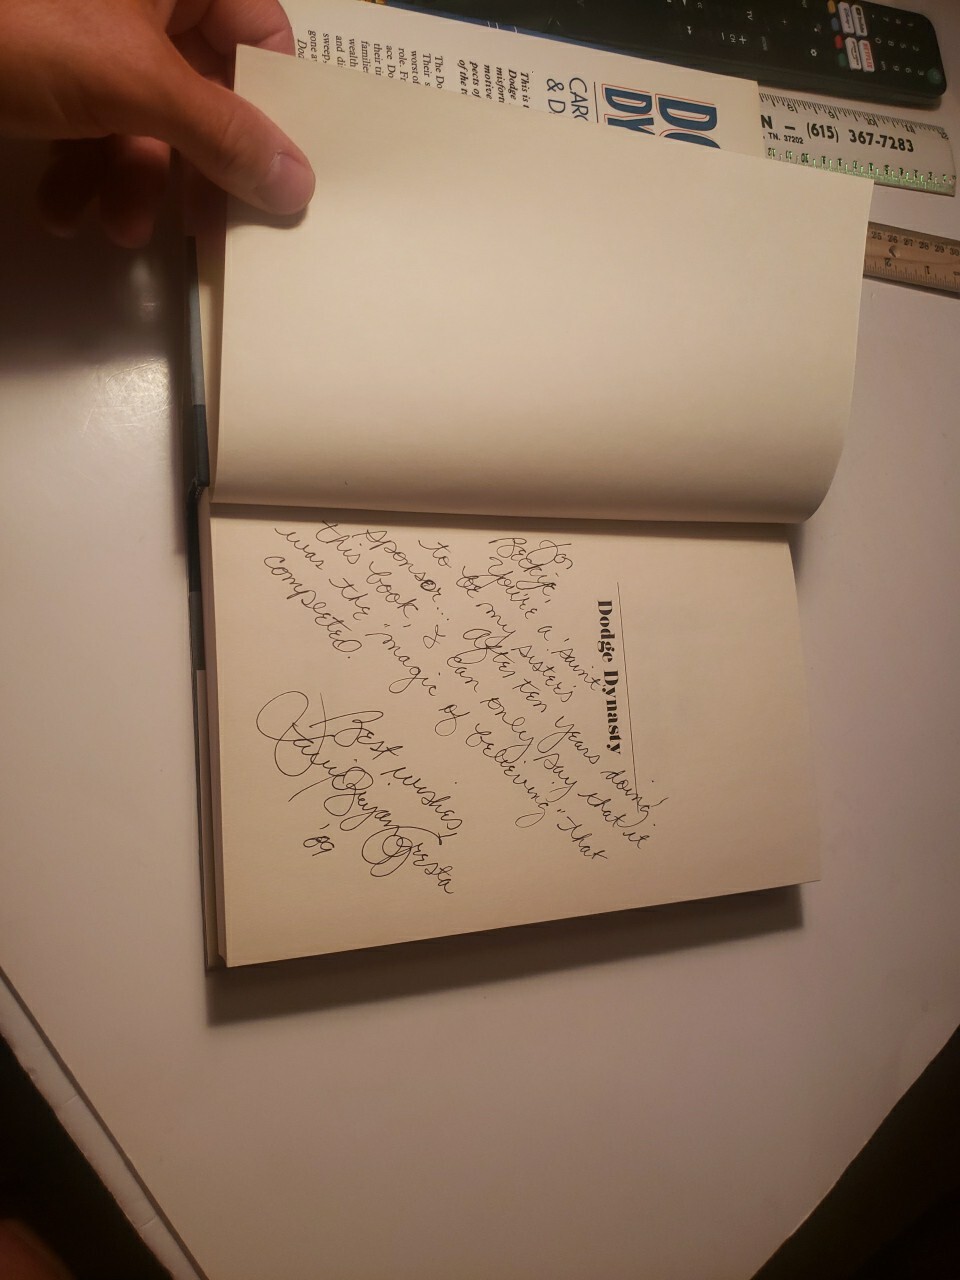 DO
DY
CARO
& D
This is
Dodge
motive
pects of
of the
The Do
Their s
worst of
role. F
ace Do
their
familie
wealth
and di
sweep
gone a
N – (615) 367-7283
TN. 37202
25 26 27 28 29 30
Dodge Dynasty
For
Beckye,
You're a 'saint'
to be my sister's
sponsor... After ten years doing
this book, I can only say that it
was the "magic of believing" that
completed.
Best wishes,
David Bryan Agresta
'89